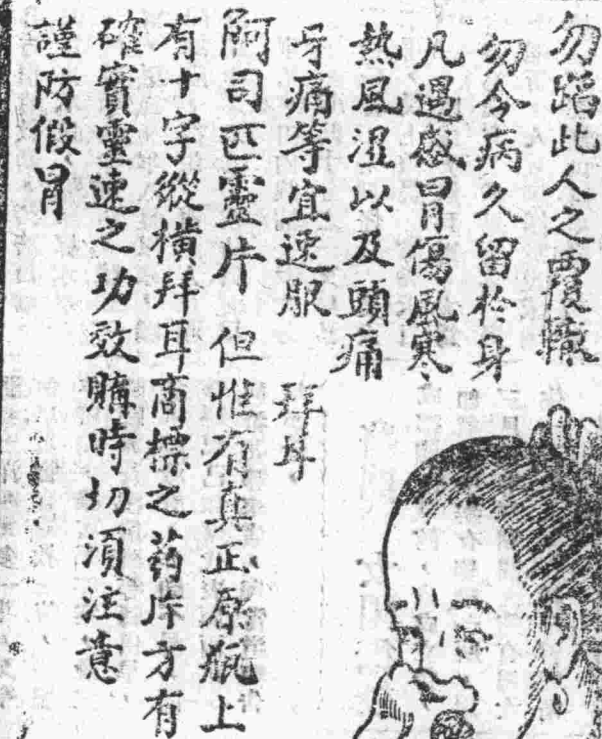 勿蹈此人之覆轍
勿令病久留於身
凡遇感冒傷風寒
熱風濕以及頭痛
牙痛等宜速服 拜耳
阿司匹靈片 但惟有真正原瓶上
有十字縱橫拜耳商標之药片方有
確實靈速之功效購時切須注意
謹防假冒